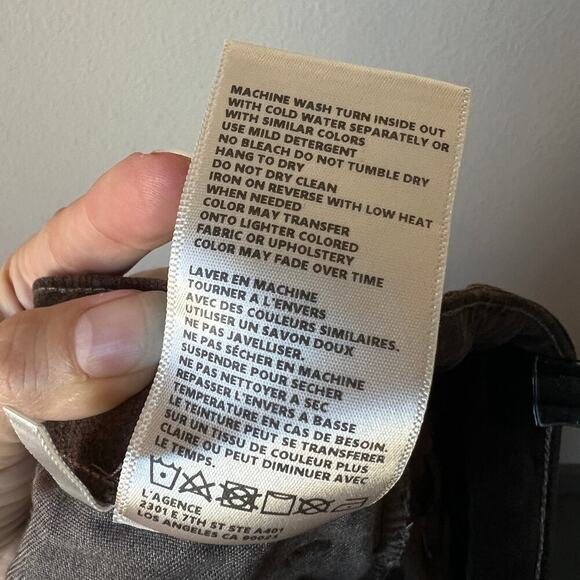 MACHINE WASH TURN INSIDE OUT
WITH COLD WATER SEPARATELY OR
WITH SIMILAR COLORS
USE MILD DETERGENT
NO BLEACH DO NOT TUMBLE DRY
HANG TO DRY
DO NOT DRY CLEAN
IRON ON REVERSE WITH LOW HEAT
WHEN NEEDED
COLOR MAY TRANSFER
ONTO LIGHTER COLORED
FABRIC OR UPHOLSTERY
COLOR MAY FADE OVER TIME
LAVER EN MACHINE
TOURNER A L'ENVERS
AVEC DES COULEURS SIMILAIRES.
UTILISER UN SAVON DOUX
NE PAS JAVELLISER.
NE PAS SÉCHER EN MACHINE
SUSPENDRE POUR SECHER
NE PAS NETTOYER A SEC
REPASSER L'ENVERS A BASSE
TEMPERATURE EN CAS DE BESOIN.
LE TEINTURE PEUT SE TRANSFERER
SUR UN TISSU DE COULEUR PLUS
CLAIRE OU PEUT DIMINUER AVEC
LE TEMPS.
L'AGENCE
2301 E 7TH ST STE A401
LOS ANGELES CA 90023